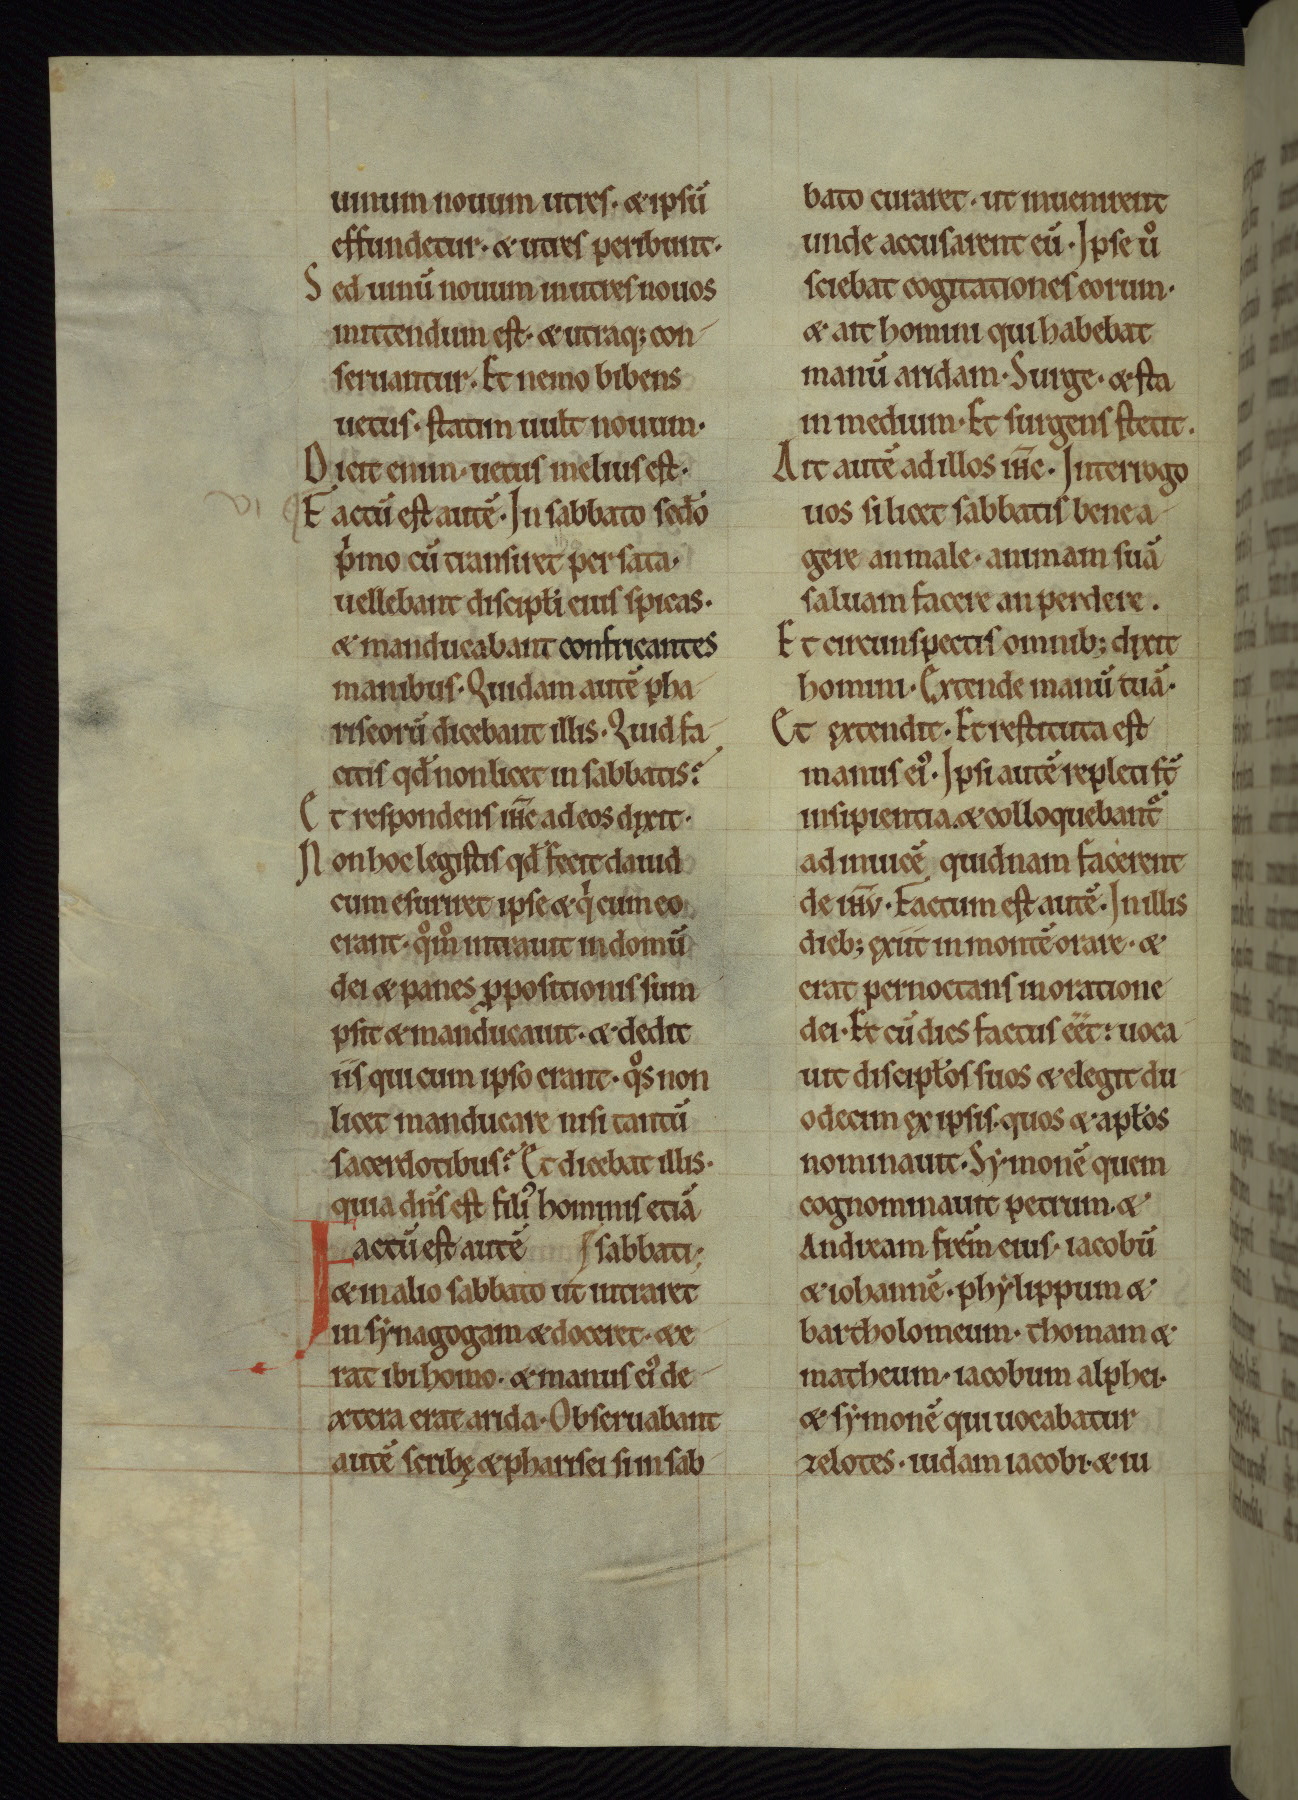 uinum nouum utres· & ipsū
effundetur· & utres peribunt·
Sed uinū nouum in utres nouos
mittendum est· & utraq; con
seruantur. Et nemo bibens
uetus· statim uult nouum·
Dicit enim· uetus melius est·
VI Factū est autē· In sabbato scd̄o
pͥmo cū transiret per sata·
uellebant discipłi eius spicas·
& manducabant confricantes
manibus· Quidam autē pha
riseorū dicebant illis· Quid fa
citis qd̄ non licet in sabbatis?
Et respondens ih̄c ad eos dixit·
Non hoc legistis qd̄ fecit dauid
cum esuriret ipse & qͥ cum eo
erant· qͦmͦ intrauit in domū
dei & panes ꝓpositionis sum
psit & manducauit· & dedit
iis qui cum ipso erant· qͦs non
licet manducare nisi tantū
sacerdotibus? Et dicebat illis·
quia dn̄s est filiꝰ hominis etiā
Factū est autē sabbati;
& in alio sabbato ut intraret
in synagogam & doceret· & e
rat ibi homo· & manus eiꝰ de
xtera erat arida· Obseruabant
autē scribę & pharisei si in sab
bato curaret· ut inuenirent
unde accusarent eū· Ipse uͦ
sciebat cogitationes eorum·
& ait homini qui habebat
manū aridam· Surge· & sta
in medium· Et surgens stetit.
Ait autē ad illos ih̄c· Interrogo
uos si licet sabbatis bene a
gere an male· animam suā
saluam facere an perdere.
Et circunspectis omnib; dixit
homini· Extende manū tuā·
Et extendit· Et restituta est
manus eiꝰ· Ipsi autē repleti st̄
insipientia. & colloquebant᷑
ad inuicē quidnam facerent
de ih̄u· Factum est autē· In illis
dieb; exiit in montē orare· &
erat pernoctans in oratione
dei· Et cū dies factus eēt: uoca
uit discipłos suos & elegit du
odecim ex ipsis. quos & apłos
nominauit· Symonē quem
cognominauit petrum. &
Andream frēm eius· iacobū
& iohannē· phylippum &
bartholomeum· thomam &
matheum· iacobum alphei·
& symonē qui uocabatur
zelotes· iudam iacobi· & iu